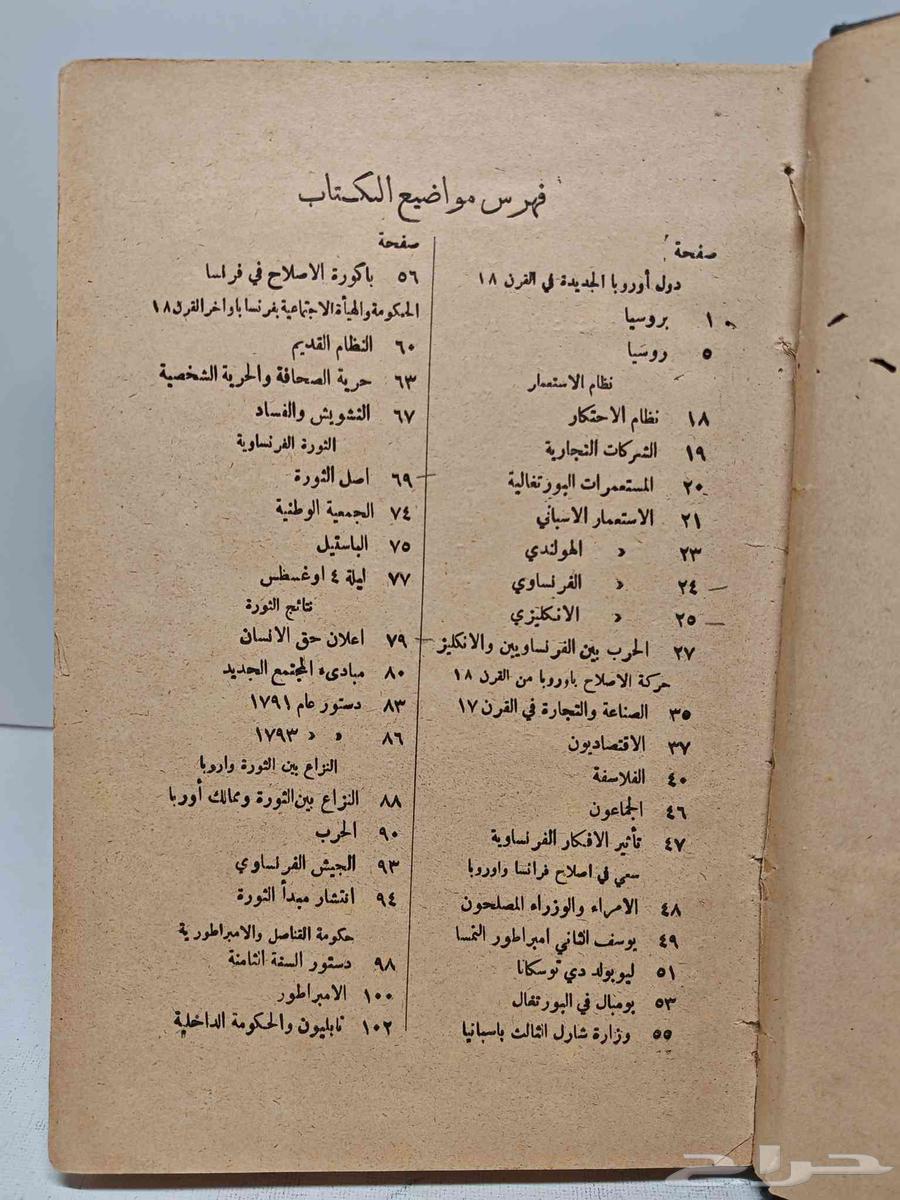 فهرس مواضيع الكتاب
صفحة
دول أوروبا الجديدة في القرن ١٨
١ بروسيا
٥ روسيا
نظام الاستعمار
١٨ نظام الاحتكار
١٩ الشركات التجارية
٢٠ المستعمرات البورتغالية
٢١ الاستعمار الاسباني
٢٣ » الهولندي
٢٤ » الفرنساوي
٢٥ » الانكليزي
٢٧ الحرب بين الفرنساويين والانكليز
حركة الاصلاح باوروبا من القرن ١٨
٣٥ الصناعة والتجارة في القرن ١٧
٣٧ الاقتصاديون
٤٠ الفلاسفة
٤٦ الجماعون
٤٧ تأثير الافكار الفرنساوية
سعي في اصلاح فرانسا واوروبا
٤٨ الامراء والوزراء المصلحون
٤٩ يوسف الثاني امبراطور النمسا
٥١ ليوبولد دي توسكانا
٥٣ بومبال في البورتقال
٥٥ وزارة شارل الثالث باسبانيا
صفحة
٥٦ باكورة الاصلاح في فرانسا
الحكومة والهيأة الاجتماعية بفرنسا باواخر القرن ١٨
٦٠ النظام القديم
٦٣ حرية الصحافة والحرية الشخصية
٦٧ التشويش والفساد
الثورة الفرنساوية
٦٩ اصل الثورة
٧٤ الجمعية الوطنية
٧٥ الباستيل
٧٧ ليلة ٤ اوغسطس
نتائج الثورة
٧٩ اعلان حق الانسان
٨٠ مبادىء المجتمع الجديد
٨٣ دستور عام ١٧٩١
٨٦ » » ١٧٩٣
النزاع بين الثورة واروبا
٨٨ النزاع بين الثورة وممالك أوربا
٩٠ الحرب
٩٣ الجيش الفرنساوي
٩٤ انتشار مبدأ الثورة
حكومة القناصل والامبراطورية
٩٨ دستور السنة الثامنة
١٠٠ الامبراطور
١٠٢ نابليون والحكومة الداخلية
حراج